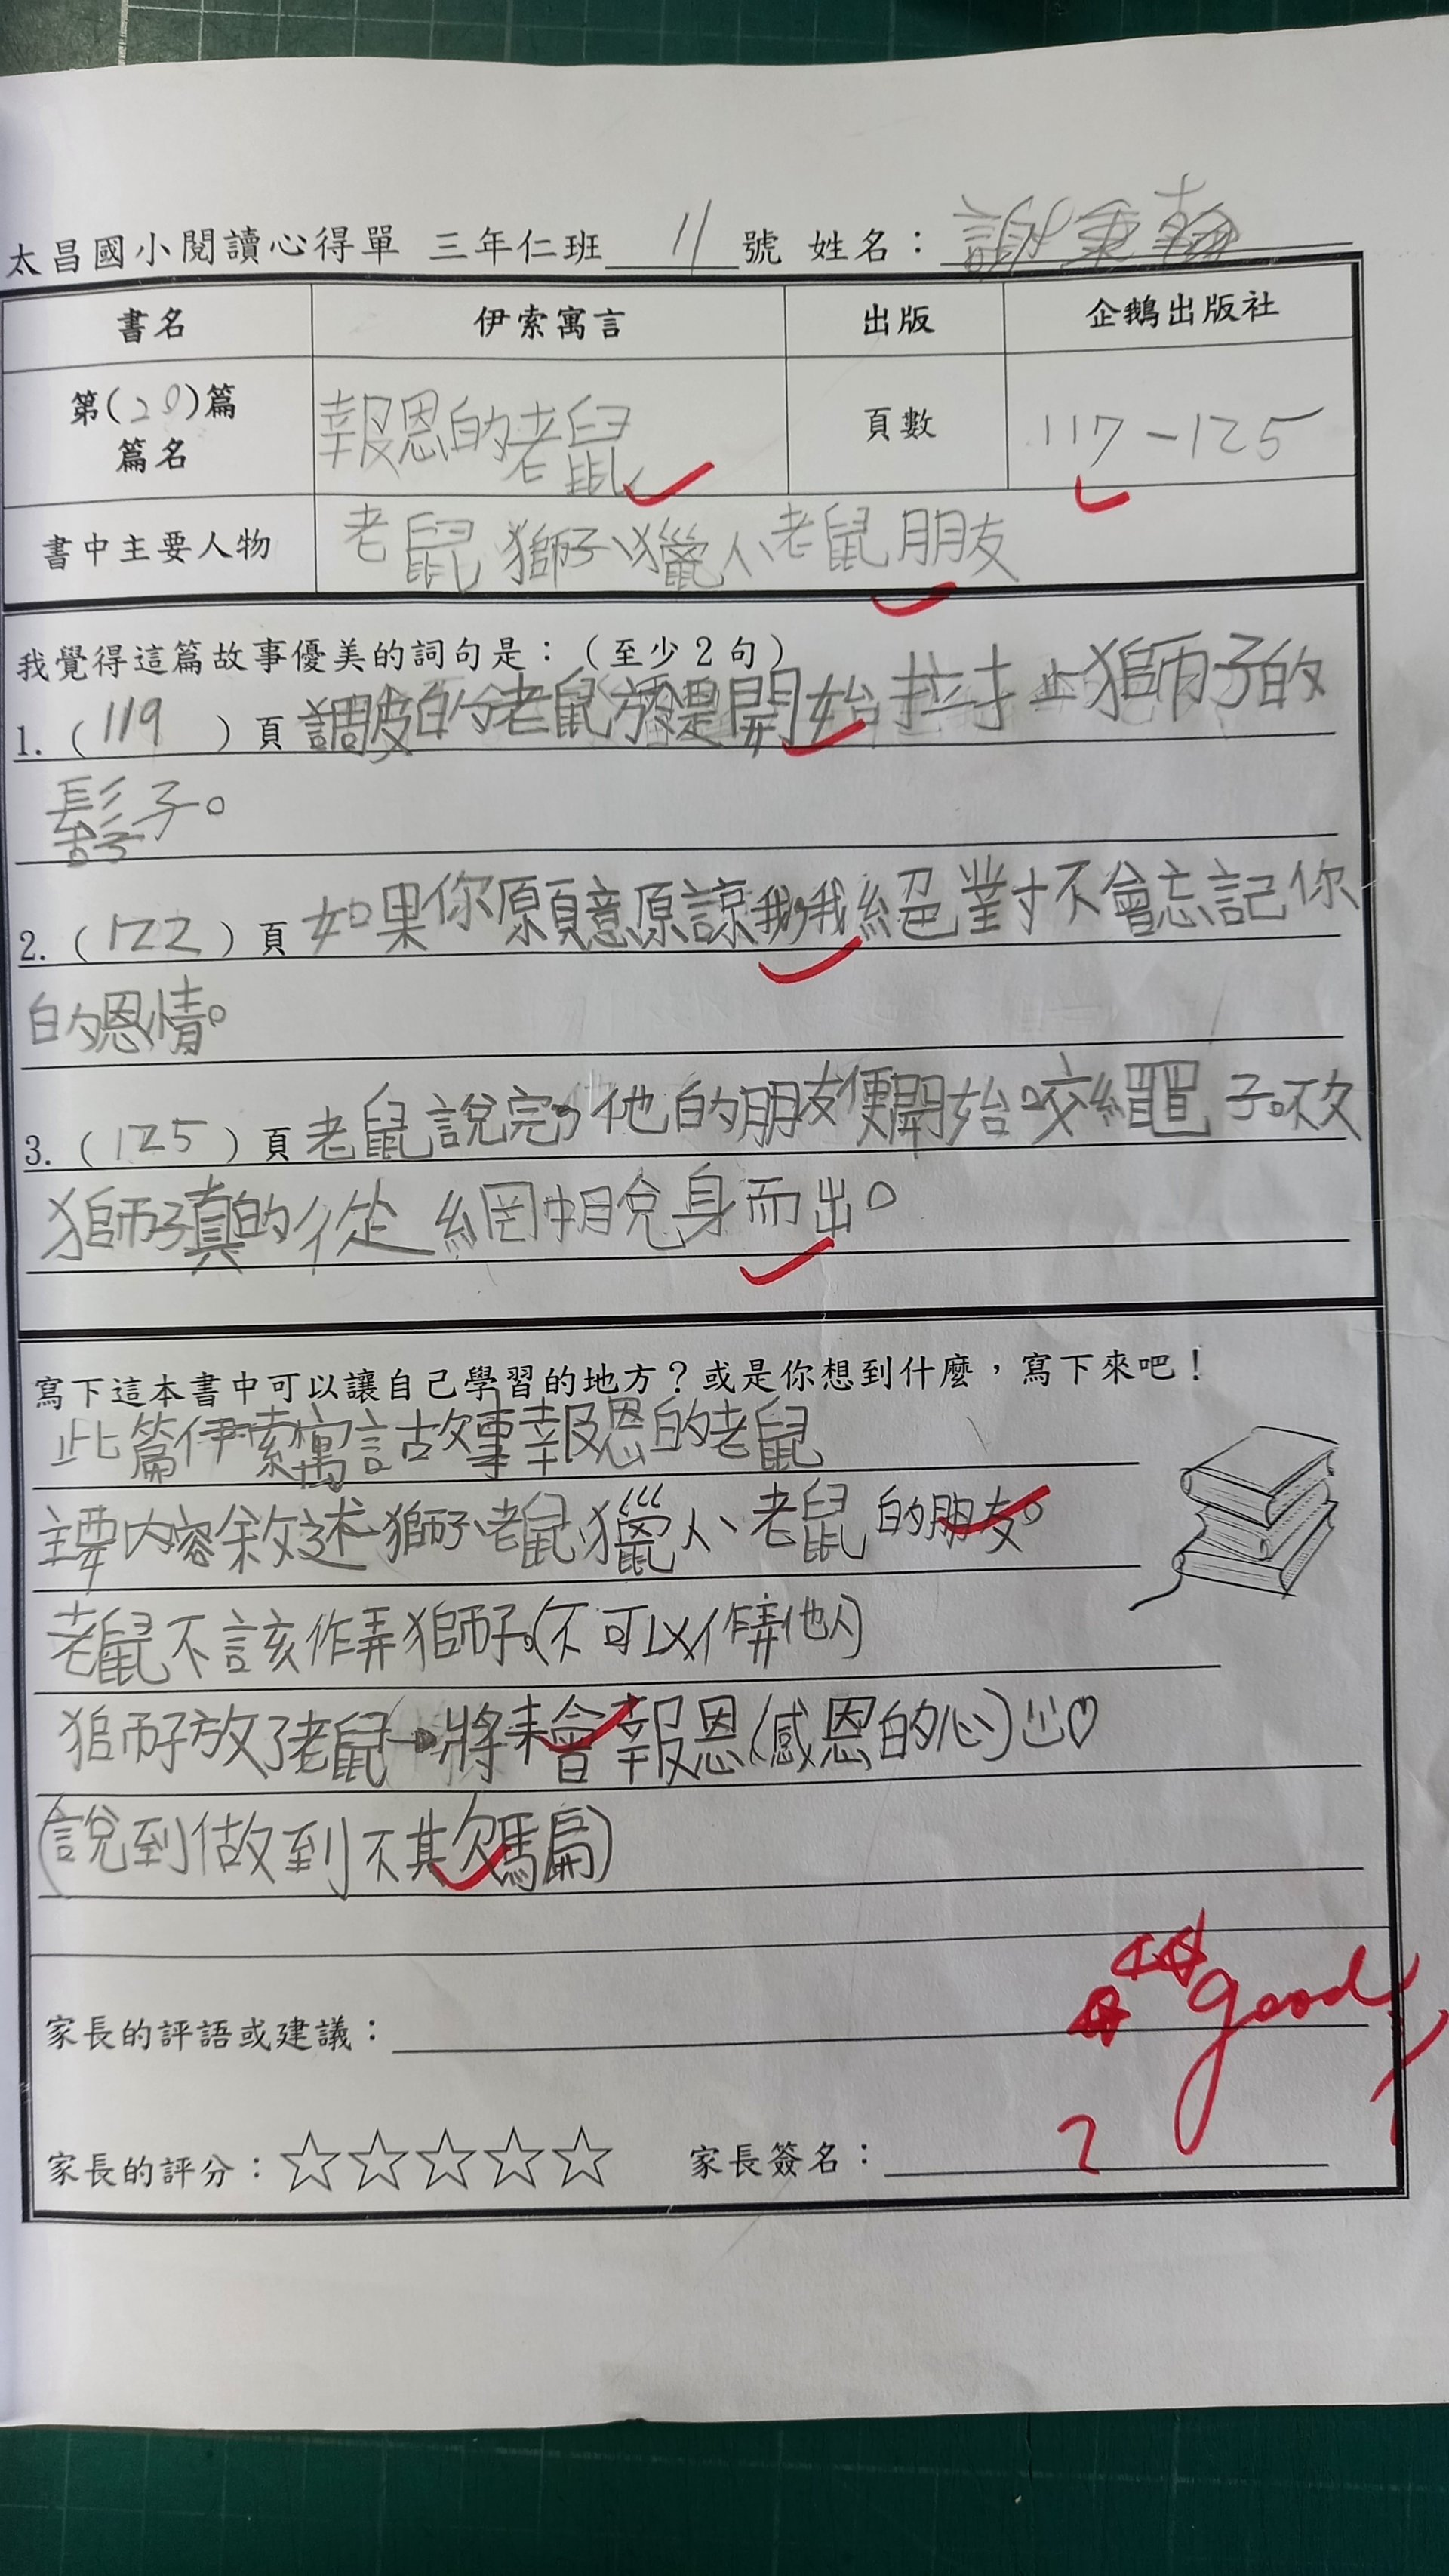 太昌國小閱讀心得單 三年仁班 11 號 姓名：謝秉翰
書名 伊索寓言 出版 企鵝出版社
第(20)篇 篇名 報恩的老鼠 頁數 117-125
書中主要人物 老鼠、獅子、獵人、老鼠朋友
我覺得這篇故事優美的詞句是：（至少2句）
1.（119）頁 調皮的老鼠於是開始拉扯獅子的
鬍子。
2.（122）頁 如果你願意原諒我，我絕對不會忘記你
的恩情。
3.（125）頁 老鼠說完，他的朋友便開始咬繩子。不久
獅子真的從網中脫身而出。
寫下這本書中可以讓自己學習的地方？或是你想到什麼，寫下來吧！
此篇伊索寓言故事報恩的老鼠
主要內容敘述獅子、老鼠、獵人、老鼠的朋友。
老鼠不該作弄獅子。(不可以作弄他人)
獅子放了老鼠→將來會報恩(感恩的心)♡
(說到做到不欺騙)
家長的評語或建議：
good
家長的評分：☆☆☆☆☆ 家長簽名：